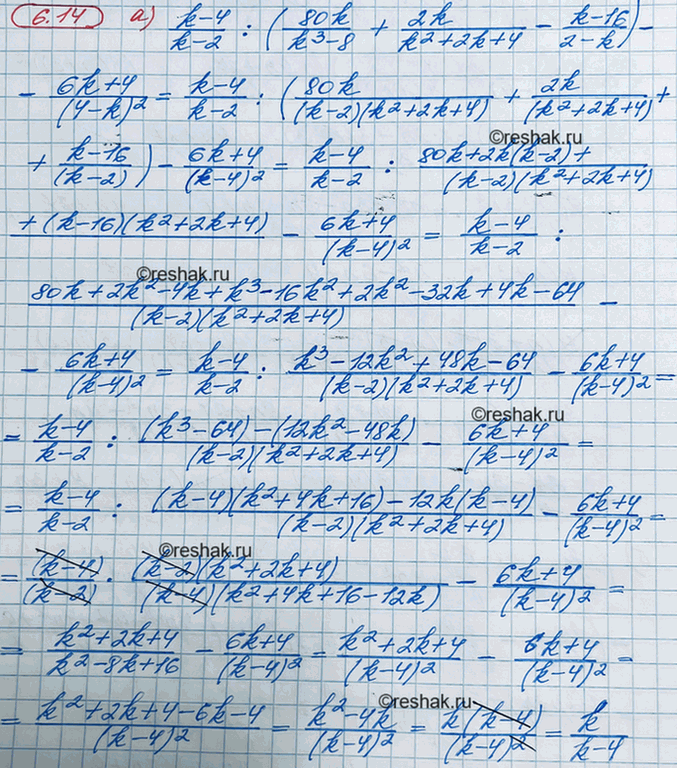 6.14 а) (k-4)/(k-2) : (80k/(k³-8) + 2k/(k²+2k+4) - (k-16)/(2-k)) -
- (6k+4)/(4-k)² = (k-4)/(k-2) : (80k/((k-2)(k²+2k+4)) + 2k/(k²+2k+4) +
©reshak.ru
+ (k-16)/(k-2)) - (6k+4)/(k-4)² = (k-4)/(k-2) : (80k+2k(k-2)+)/((k-2)(k²+2k+4))
+(k-16)(k²+2k+4) - (6k+4)/(k-4)² = (k-4)/(k-2) :
©reshak.ru
(80k+2k²-4k+k³-16k²+2k²-32k+4k-64)/((k-2)(k²+2k+4)) -
- (6k+4)/(k-4)² = (k-4)/(k-2) : (k³-12k²+48k-64)/((k-2)(k²+2k+4)) - (6k+4)/(k-4)² =
©reshak.ru
= (k-4)/(k-2) : ((k³-64)-(12k²-48k))/((k-2)(k²+2k+4)) - (6k+4)/(k-4)² =
= (k-4)/(k-2) : ((k-4)(k²+4k+16)-12k(k-4))/((k-2)(k²+2k+4)) - (6k+4)/(k-4)² =
©reshak.ru
= (k-4)/(k-2) · ((k-2)(k²+2k+4))/((k-4)(k²+4k+16-12k)) - (6k+4)/(k-4)² =
= (k²+2k+4)/(k²-8k+16) - (6k+4)/(k-4)² = (k²+2k+4)/(k-4)² - (6k+4)/(k-4)² =
©reshak.ru
= (k²+2k+4-6k-4)/(k-4)² = (k²-4k)/(k-4)² = k(k-4)/(k-4)² = k/(k-4)